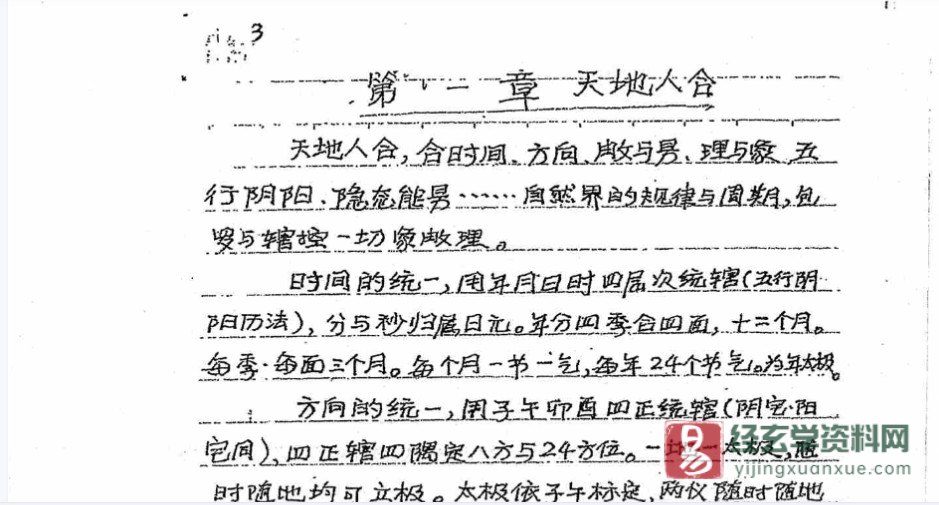 3
第一章 天地人合
天地人合，合时间、方向、数与易、理与象 五
行阴阳、隐态能易……自然界的规律与周期，包
罗与辖控一切象数理。
时间的统一，用年月日时四层次统辖（五行阴
阳历法），分与秒归属日元。年分四季合四面，十二个月。
每季·每面三个月。每个月一节一气，每年24个节气。为年太极。
方向的统一，用子午卯酉四正统辖（阴宅·阳
宅同），四正辖四隅定八方与24方位。一地一太极，随
时随地均可立极。太极依子午标定，两仪随时随地
易
经玄学资料网
yijingxuanxue.com